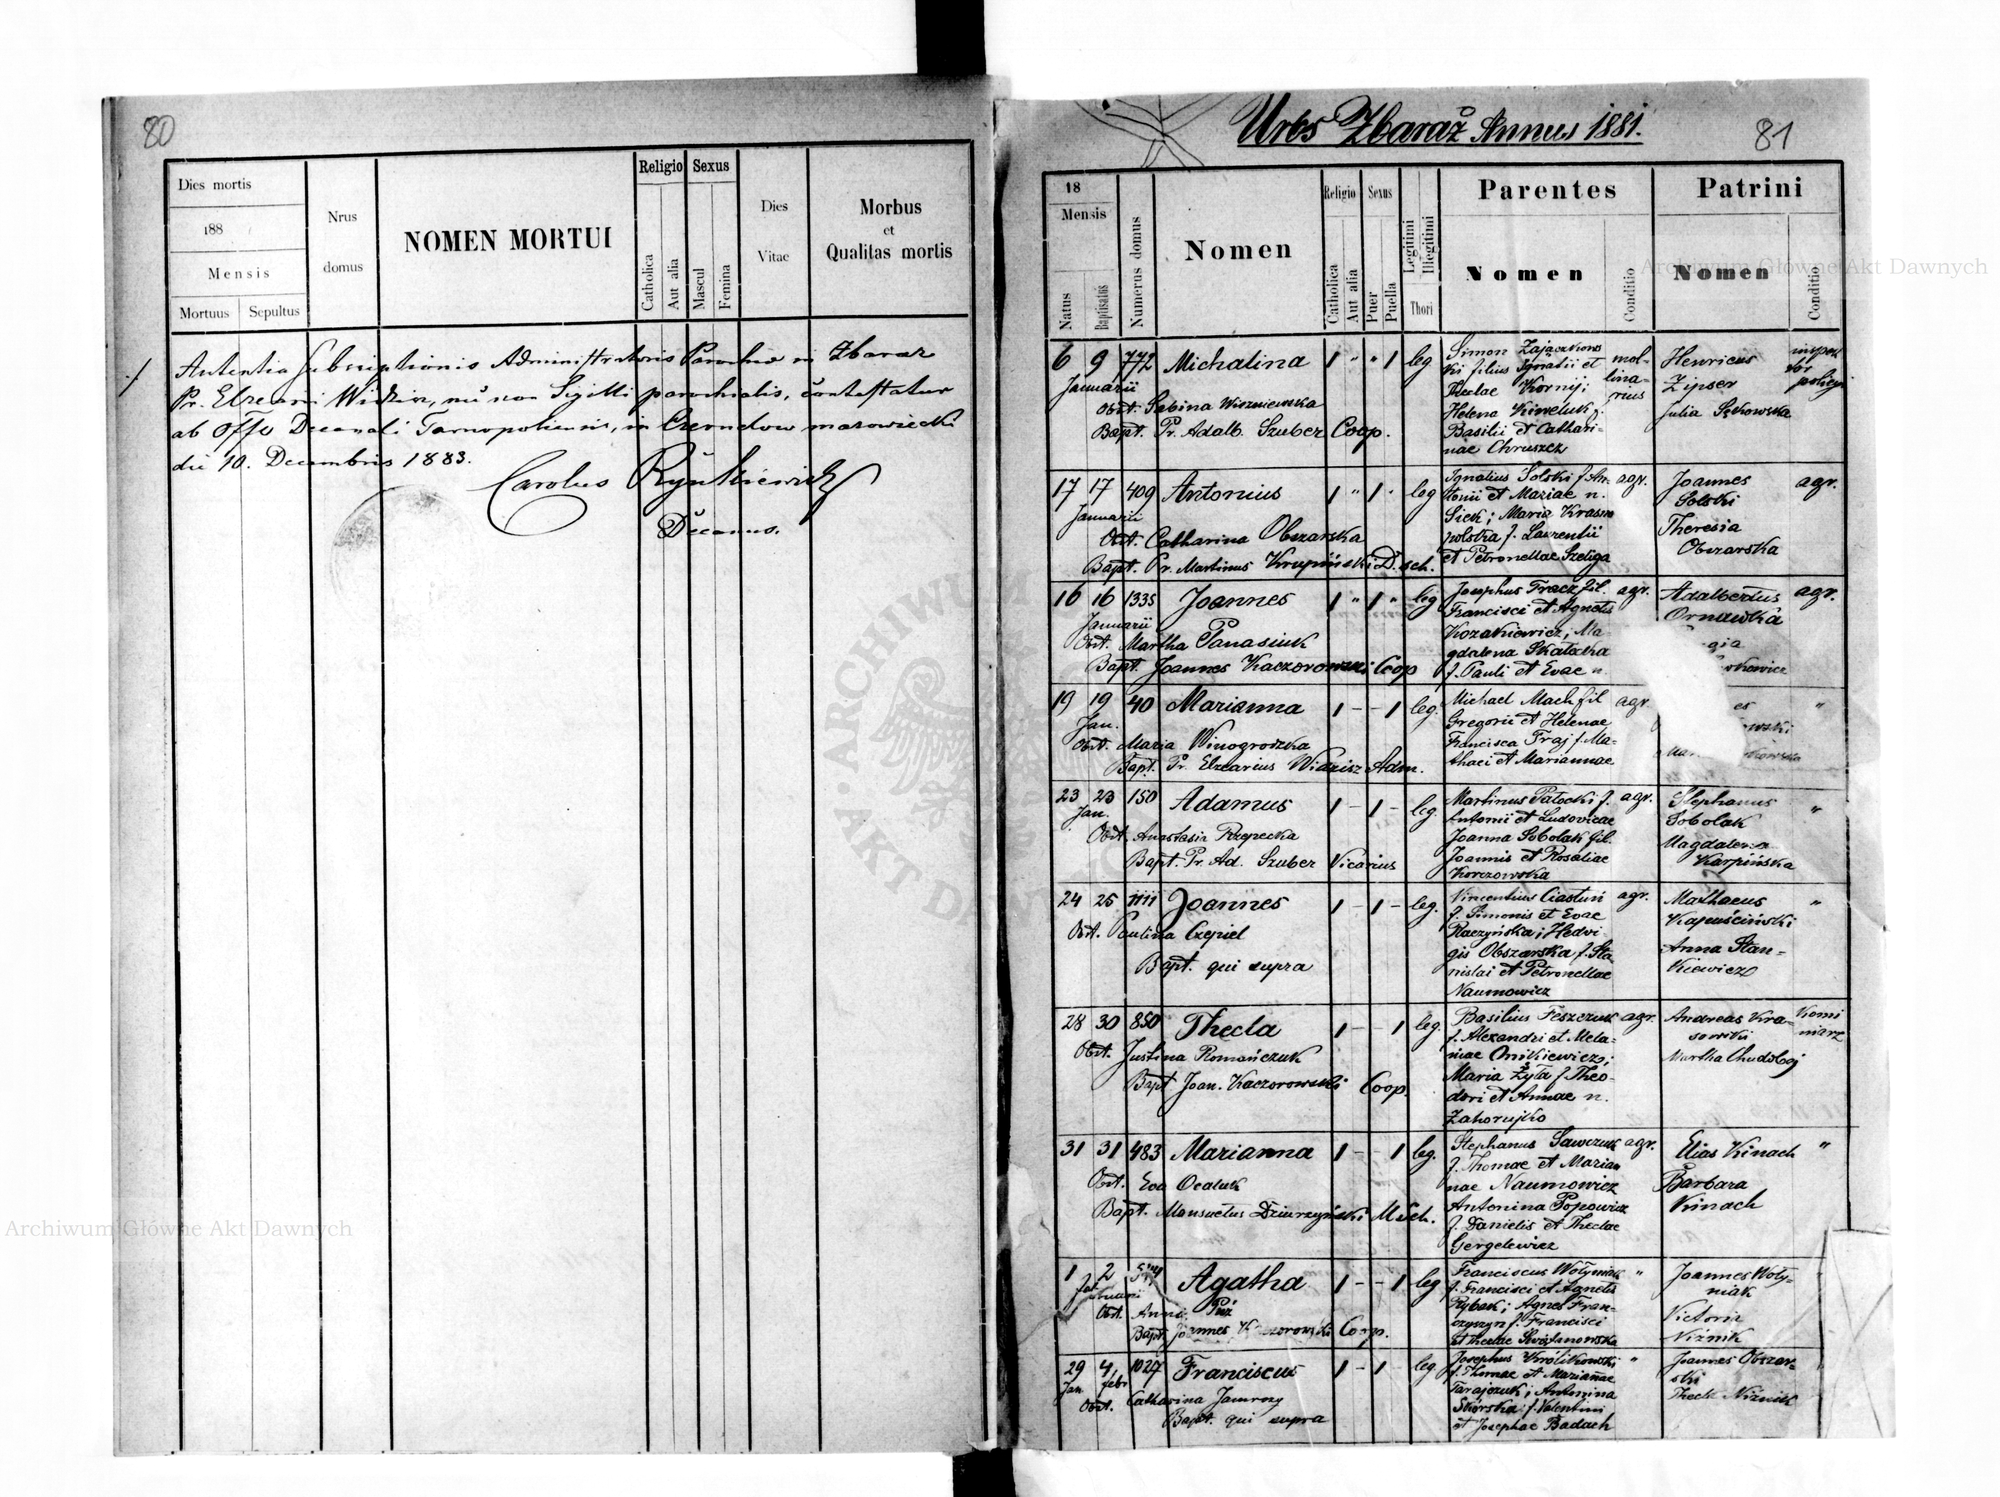 80
Dies mortis
188
Mensis
Mortuus
Sepultus
Nrus
domus
NOMEN MORTUI
Religio
Catholica
Aut alia
Sexus
Mascul
Femina
Dies
Vitae
Morbus
et
Qualitas mortis
Subscriptionis Administratoris Parochiae in Zbaraż
Pr. Elzearii Sigilli parochialis,
ab Offo Decanali Tarnopoliensi, in mazowiecki
die 10. Decembris 1883.
Carolus
Decanus.
Urbs Zbaraż Annus 1881.
81
18
Mensis
Natus
Baptisatus
Numerus domus
Nomen
Religio
Catholica
Aut alia
Sexus
Puer
Puella
Legitimi
Illegitimi
Thori
Parentes
Nomen
Conditio
Patrini
Nomen
Conditio
6 9 772 Michalina 1 " " 1 leg
Januarii
Obst. Sabina Wiszniewska
Bapt. Pr. Adalb. Szuber Coop.
Simon Zajączkows
ki filius Ignatii et
Theclae Kornij;
Helena
Basilii et Cathari-
nae Chruszcz
mol-
lina-
rius
Henricus
Zipser
Julia Sękowska
17 17 409 Antonius 1 " 1 " leg
Januarii
Obst. Catharina Obszarska
Bapt. Pr. Martinus Krupiński D. sch.
Ignatius Solski f. An-
tonii et Mariae n.
Sick; Maria Krasno
polska f. Laurentii
et Petronellae Szeliga
agr.
Joannes
Solski
Theresia
Obszarska
agr.
16 16 1335 Joannes 1 " 1 " leg
Januarii
Obst. Martha Panasiuk
Bapt. Joannes Kaczorowski Coop
Josephus Fracz fil.
Francisci et Agnetis
Kozakiewicz; Ma-
gdalena Skałacka
f. Pauli et Evae n.
agr.
Adalbertus
Ornawka
agr.
19 19 40 Marianna 1 - - 1 leg.
Jan.
Obst. Maria Winogrodzka
Bapt. Pr. Elzearius Widzisz Adm.
Michael Mach fil
Gregorii et Helenae
Francisca Fraj f. Ma-
thaei et Mariannae
agr.
"
23 23 150 Adamus 1 - 1 - leg.
Jan.
Obst. Anastasia Rzepecka
Bapt. Pr. Ad. Szuber Vicarius
Martinus Patocki f.
Antonii et Ludovicae
Joanna Sobolak fil.
Joannis et Rosaliae
Korczowska
agr.
Stephanus
Sobolak
Magdalena
Karpińska
"
24 25 1111 Joannes 1 - 1 - leg.
Obst. Paulina Czepiel
Bapt. qui supra
Vincentius Ciastuń
f. Simonis et Evae
Raczyńska; Hedvi
gis Obszarska f. Sta-
nislai et Petronellae
Naumowicz
agr.
Mathaeus
Kapuściński
Anna Stan-
kiewicz
"
28 30 850 Thecla 1 - - 1 leg.
Obst. Justina Romańczuk
Bapt Joan. Kaczorowski Coop.
Basilius Feszczuk
f. Alexandri et Mela-
niae Onikiewicz;
Maria Żyła f. Theo-
dori et Annae n.
Zahorujko
agr.
Andreas Kra-
sowski
Martha
Komi
niarz
31 31 483 Marianna 1 - - 1 leg.
Obst. Eva
Bapt. Mansuetus Dziurzyński Misch.
Stephanus Sawczuk
f. Thomae et Marian
nae Naumowicz
Antonina Popowicz
f. Danielis et Theclae
Gergelewicz
agr.
Elias Kinach
Barbara
Kinach
"
1 2 Agatha 1 - - 1 leg
Februarii
Obst. Anna
Bapt. Joannes Kaczorowski Coop.
Franciscus Wołyniak
f. Francisci et Agnetis
Rybak; Agnes Fran-
czyszyn f. Francisci
et Theclae
"
Joannes Woły-
niak
Victoria
Niżnik
29 4 1027 Franciscus 1 - 1 - leg.
Jan febr
Obst. Catharina Jamrozy
Bapt. qui supra
Josephus Królikowski
f. Thomae et Mariannae
Tarajczuk; Antonina
Sikorska f. Valentini
et Josephae Badach
"
Joannes Obszar-
ski
Thecla Niżnik
Archiwum Główne Akt Dawnych
Archiwum Główne Akt Dawnych